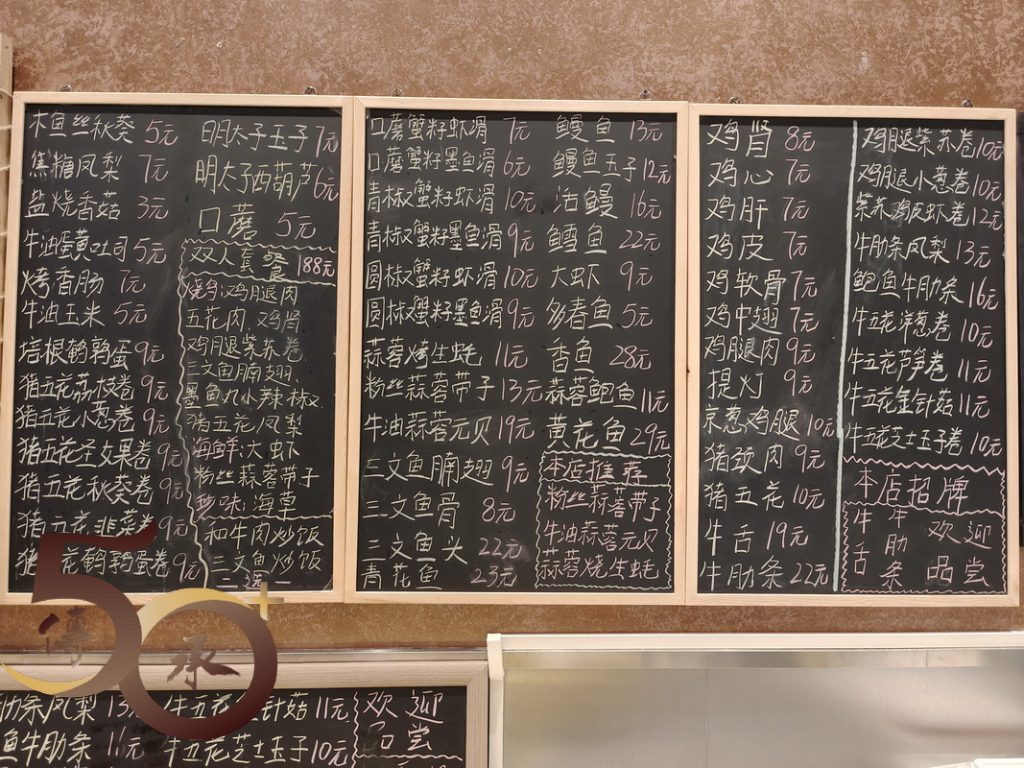 木鱼丝秋葵 5元
焦糖凤梨 7元
盐烧香菇 3元
牛油蛋黄吐司 5元
烤香肠 7元
牛油玉米 5元
培根鹌鹑蛋 9元
猪五花荔枝卷 9元
猪五花小葱卷 9元
猪五花圣女果卷 9元
猪五花秋葵卷 9元
猪五花韭菜 9元
猪 花鹌鹑蛋卷 9元
明太子玉子 7元
明太子西葫芦 6元
口蘑 5元
双人套餐 188元
烧鸟:鸡腿肉
五花肉、鸡肾
鸡腿紫苏卷
三文鱼腩翅、
墨鱼丸小辣椒
猪五花凤梨
海鲜:大虾
粉丝蒜蓉带子
珍味:海草
和牛肉炒饭
三文鱼炒饭
二选一
口蘑蟹籽虾滑 7元
口蘑蟹籽墨鱼滑 6元
青椒蟹籽虾滑 10元
青椒蟹籽墨鱼滑 9元
圆椒蟹籽虾滑 10元
圆椒蟹籽墨鱼滑 9元
蒜蓉烤生蚝 11元
粉丝蒜蓉带子 13元
牛油蒜蓉元贝 19元
三文鱼腩翅 9元
三文鱼骨 8元
三文鱼头 22元
青花鱼 23元
鳗鱼 13元
鳗鱼玉子 12元
活鳗 16元
鳕鱼 22元
大虾 9元
多春鱼 5元
香鱼 28元
蒜蓉鲍鱼 11元
黄花鱼 29元
本店推荐
粉丝蒜蓉带子
牛油蒜蓉元贝
蒜蓉烧生蚝
鸡肾 8元
鸡心 7元
鸡肝 7元
鸡皮 7元
鸡软骨 7元
鸡中翅 7元
鸡腿肉 9元
提灯 9元
京葱鸡腿 10元
猪颈肉 9元
猪五花 10元
牛舌 19元
牛肋条 22元
鸡腿紫苏卷 10元
鸡腿小葱卷 10元
紫苏鸡皮虾卷 12元
牛肋条凤梨 13元
鲍鱼牛肋条 16元
牛五花洋葱卷 10元
牛五花芦笋卷 11元
牛五花金针菇 11元
牛五花芝士玉子卷 10元
本店招牌
牛舌
牛肋条
欢迎
品尝
50+
傳承
肋条凤梨 13
鱼牛肋条 11元
牛五花 针菇 11元
牛五花芝士玉子 10元
欢迎
品尝